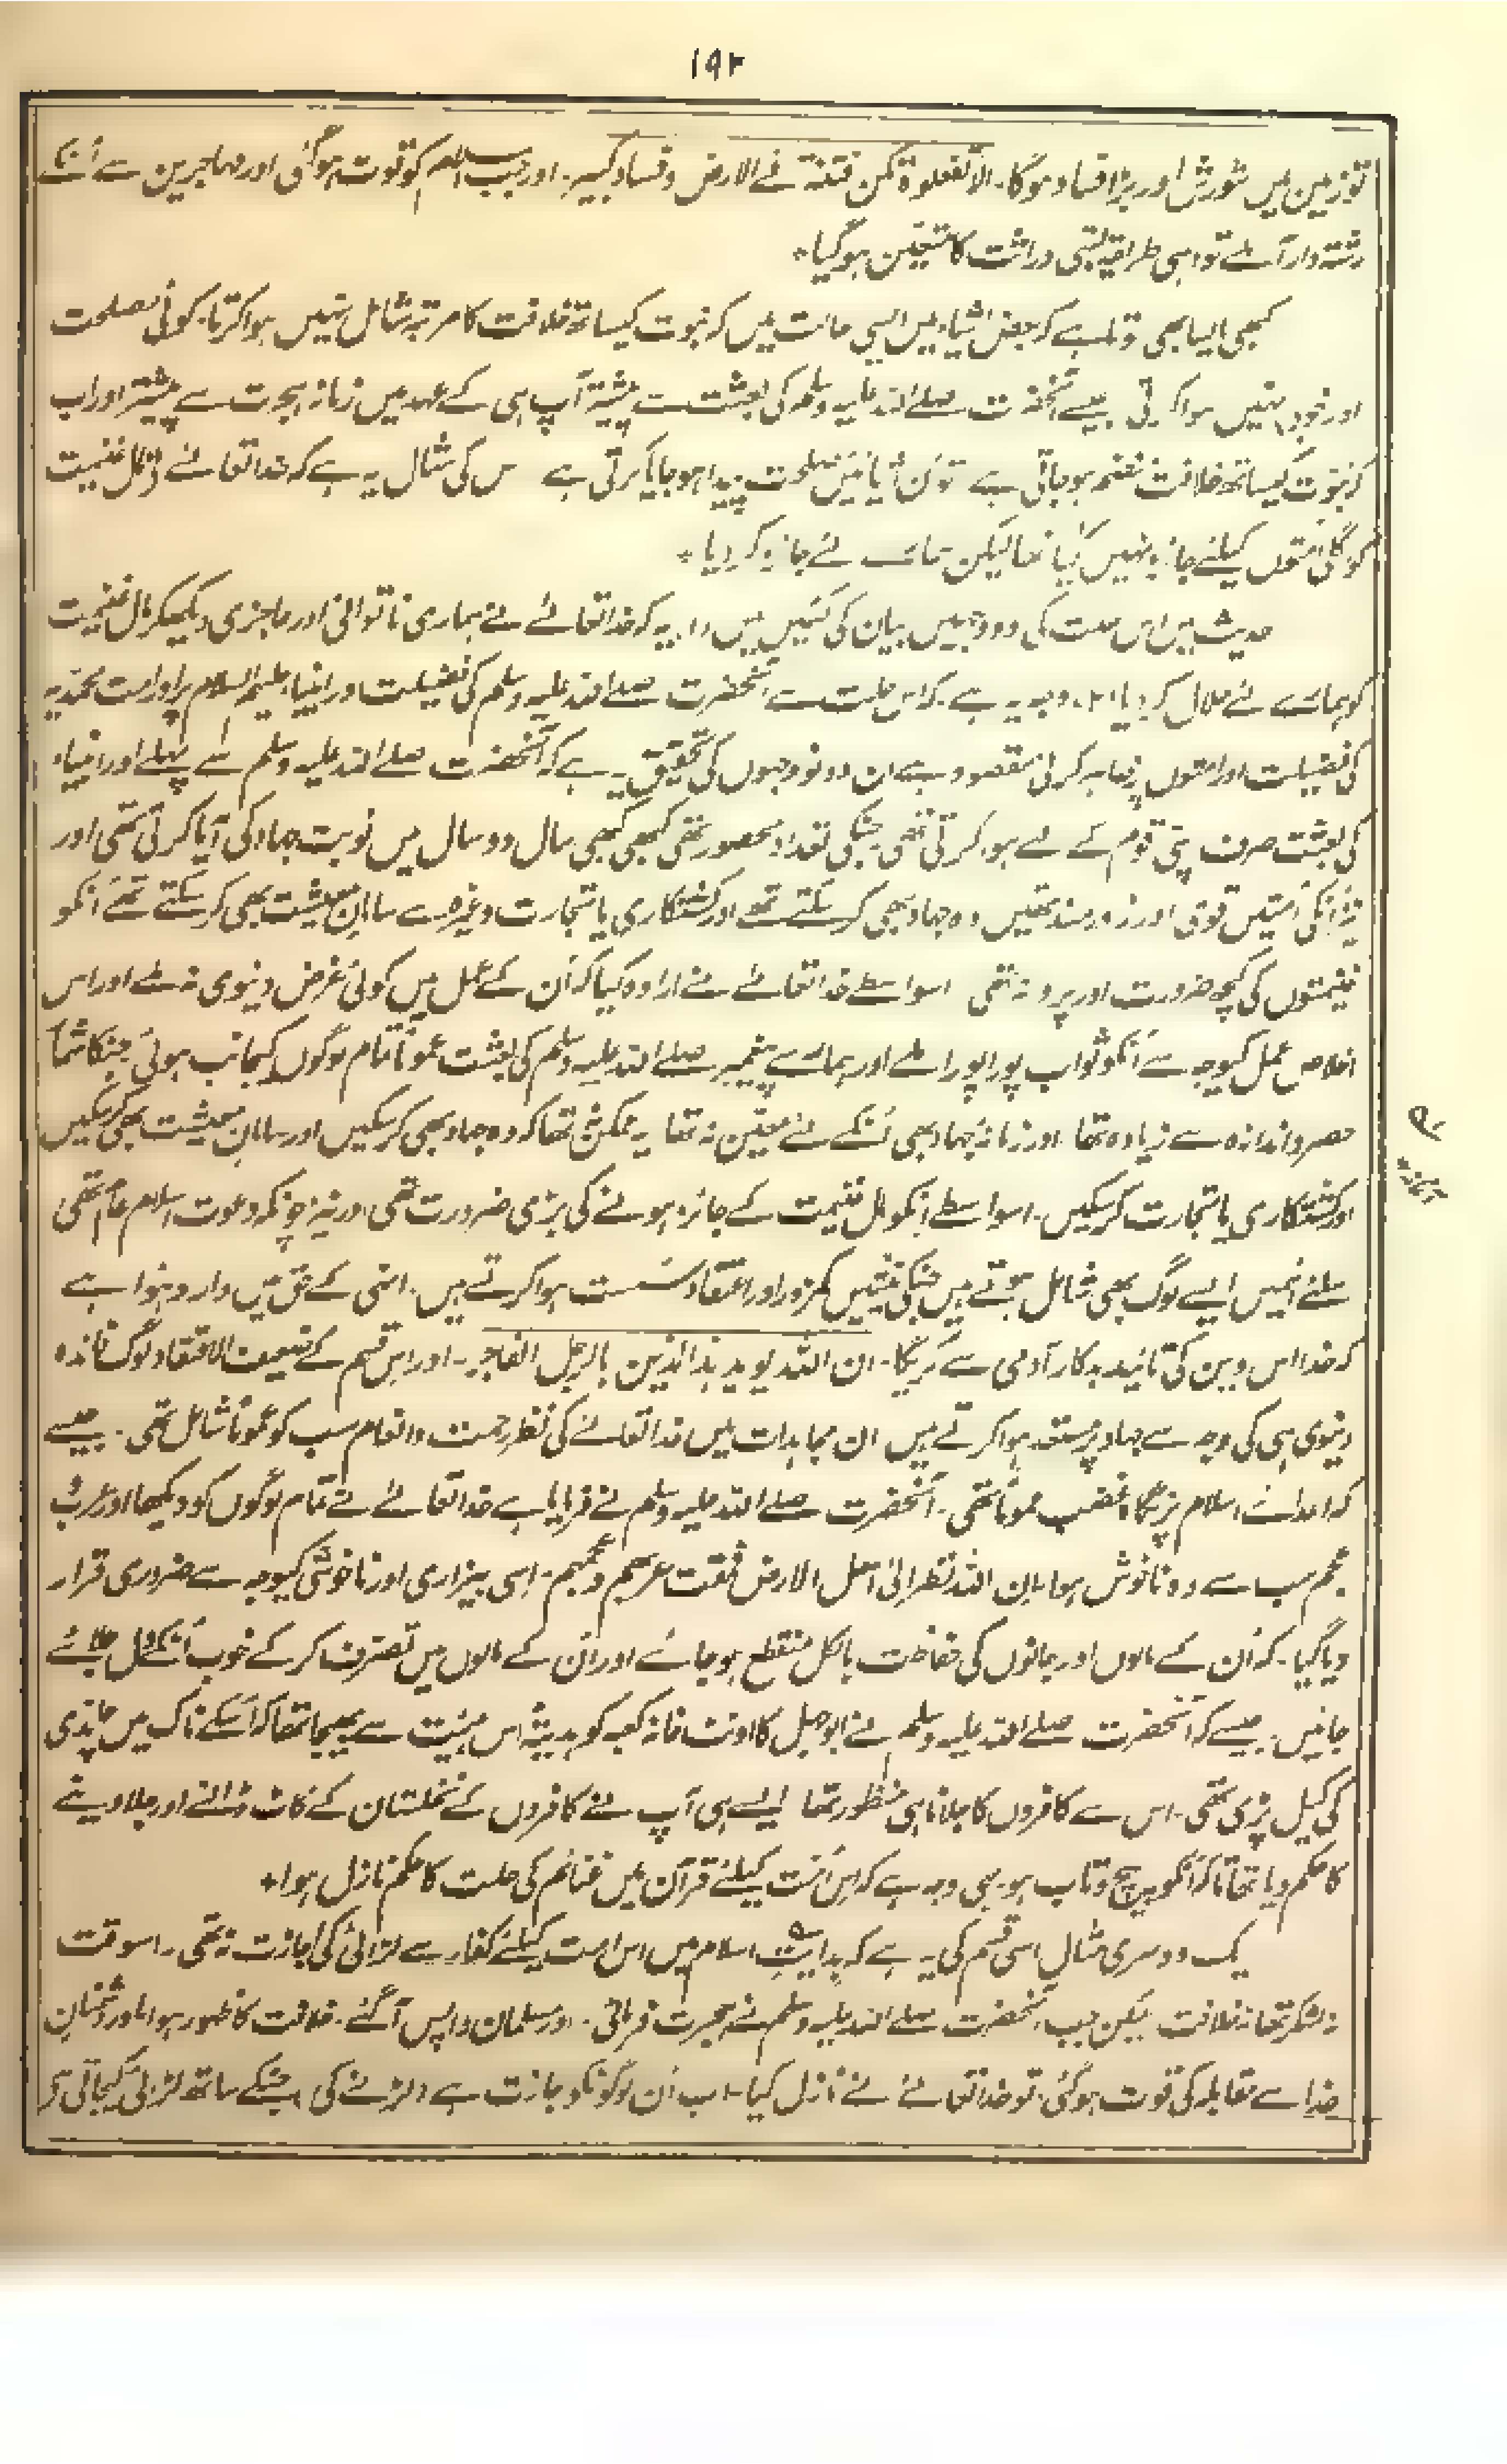 ۱۹۲
تو زمین میں شورش اور بڑا فساد ہوگا۔ الا تفعلوہ تکن فتنۃ فے الارض وفساد کبیر۔ اور جب اسلام کو قوت ہوگئی اور مہاجرین سے اُنکے
رشتہ دار آملے تو وہی طریقہ نسبی وراثت کا متعین ہوگیا۔
کبھی ایسا بھی ہوتا ہے کہ بعض اشیاء میں ایسی حالت میں کہ نبوت کیساتھ خلافت کا مرتبہ شامل نہیں ہوا کرتا۔ کوئی مصلحت
اور خوبی نہیں ہوا کرتی جیسے آنحضرت صلے اللہ علیہ وسلم کی بعثت سے پیشتر آپ ہی کے عہد میں زمانہ ہجرت سے پیشتر اور اب
کہ نبوت کیساتھ خلافت منضم ہوجاتی ہے تو اُن اشیا میں مصلحت پیدا ہوجایا کرتی ہے اس کی مثال یہ ہے کہ خدا تعالےٰ نے مال غنیمت
کو اگلی امتوں کیلئے جائز نہیں کیا تھا لیکن ہمارے لئے جائز کردیا۔
حدیث میں اس حلت کی دو وجہیں بیان کی گئیں ہیں (۱) یہ کہ خدا تعالےٰ نے ہماری ناتوانی اور عاجزی دیکھکر مال غنیمت
کو ہمارے لئے حلال کردیا (۲) وجہ یہ ہے۔ کہ اس حلت سے آنحضرت صلے اللہ علیہ وسلم کی فضیلت اور انبیاء علیہم السلام پر اور امت محمدیہ
کی فضیلت اور امتوں پر ظاہر کرنی مقصود ہے ان دونو وجہوں کی تحقیق یہ ہے کہ آنحضرت صلے اللہ علیہ وسلم سے پہلے اور انبیاء
کی بعثت صرف اپنی قوم کے لئے ہوا کرتی تھی جنکی تعداد محصور تھی کبھی کبھی سال دو سال میں نوبت جہاد کی آیا کرتی تھی اور
نیز اُنکی اُمتیں قوی اور زورمند تھیں وہ جہاد بھی کرسکتے تھے اور کشتکاری یا تجارت وغیرہ سے سامان معیشت بھی کرسکتے تھے اُنکو
غنیمتوں کی کچھ ضرورت اور پروا نہ تھی اسواسطے خدا تعالےٰ نے ارادہ کیا کہ اُن کے عمل میں کوئی غرض دنیوی نہ ملے اور اس
اخلاص عمل کیوجہ سے اُنکو ثواب پورا پورا ملے اور ہمارے پیغمبر صلے اللہ علیہ وسلم کی بعثت عموماً تمام لوگوں کیجانب ہوئی جنکا شمار
حصر و اندازہ سے زیادہ تھا اور زمانہ جہاد بھی اُنکے لئے معین نہ تھا یہ ممکن نہ تھا کہ وہ جہاد بھی کرسکیں اور سامان معیشت بھی کرسکیں
اور کشتکاری یا تجارت کرسکیں۔ اسواسطے اُنکو مال غنیمت کے جائز ہونے کی بڑی ضرورت تھی اور نیز چونکہ دعوت اسلام عام تھی
اسلئے انہیں ایسے لوگ بھی شامل ہوتے ہیں جنکی نیتیں کمزور اور اعتقاد سست ہوا کرتے ہیں۔ انہی کے حق میں وارد ہوا ہے
کہ خدا اس دین کی تائید بدکار آدمی سے کریگا۔ ان اللہ یوید ہذا الدین بالرجل الفاجر۔ اور اس قسم کے ضعیف الاعتقاد لوگ فائدہ
دنیوی ہی کی وجہ سے جہاد پر مستعد ہوا کرتے ہیں ان مجاہدات میں خدا تعالےٰ کی نظر رحمت و انعام سب کو عموماً شامل تھی۔ جیسے
کہ اعدائے اسلام پر نگاہ غضب عموماً تھی۔ آنحضرت صلے اللہ علیہ وسلم نے فرمایا ہے خدا تعالےٰ نے تمام لوگوں کو دیکھا اور عرب
عجم سب سے وہ ناخوش ہوا۔ ان اللہ نظر الیٰ اہل الارض فمقت عربہم وعجمہم۔ اسی بیزاری اور ناخوشی کیوجہ سے ضروری قرار
دیا گیا۔ کہ اُن کے مالوں اور جانوں کی حفاظت بالکل منقطع ہوجائے اور اُن کے مالوں میں تصرف کرکے خوب اُنکے دل جلائے
جائیں۔ جیسے کہ آنحضرت صلے اللہ علیہ وسلم نے ابوجہل کا اونٹ خانہ کعبہ کو ہدیۃً اس ہیئت سے بھیجا تھا کہ اُسکے ناک میں چاندی
کی کیل پڑی تھی۔ اس سے کافروں کا جلانا ہی منظور تھا ایسے ہی آپ نے کافروں کے نخلستان کے کاٹ ڈالنے اور جلادینے
کا حکم دیا تھا تاکہ اُنکو پیچ و تاب ہو یہی وجہ ہے کہ اس اُمت کیلئے قرآن میں غنائم کی حلت کا حکم نازل ہوا۔
ایک دوسری مثال اسی قسم کی یہ ہے کہ ہدایت اسلام میں اس امت کیلئے کفار سے لڑائی کی اجازت نہ تھی۔ اسوقت
نہ لشکر تھا نہ خلافت لیکن جب آنحضرت صلے اللہ علیہ وسلم نے ہجرت فرمائی۔ اور مسلمان واپس آگئے۔ خلافت کا ظہور ہوا اور دشمنان
خدا سے مقابلہ کی قوت ہوگئی۔ تو خدا تعالےٰ نے نازل کیا۔ اب اُن لوگونکو اجازت ہے (لڑنے کی) جنکے ساتھ لڑائی کیجاتی ہے